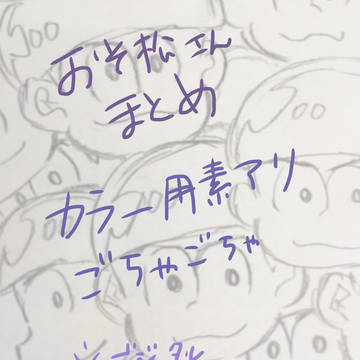 おそ松さん
まとめ
カラー用素アリ
ごちゃごちゃ